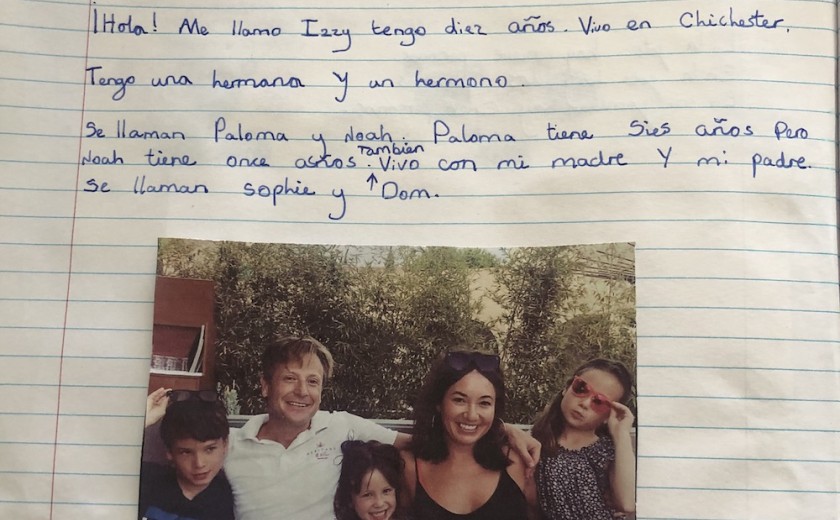 ¡Hola! Me llamo Izzy tengo diez años. Vivo en Chichester.
Tengo una hermana y un hermono.
Se llaman Paloma y Noah. Paloma tiene Sies años Pero
Noah tiene once años. También Vivo con mi madre Y mi padre.
Se llaman sophie y Dom.